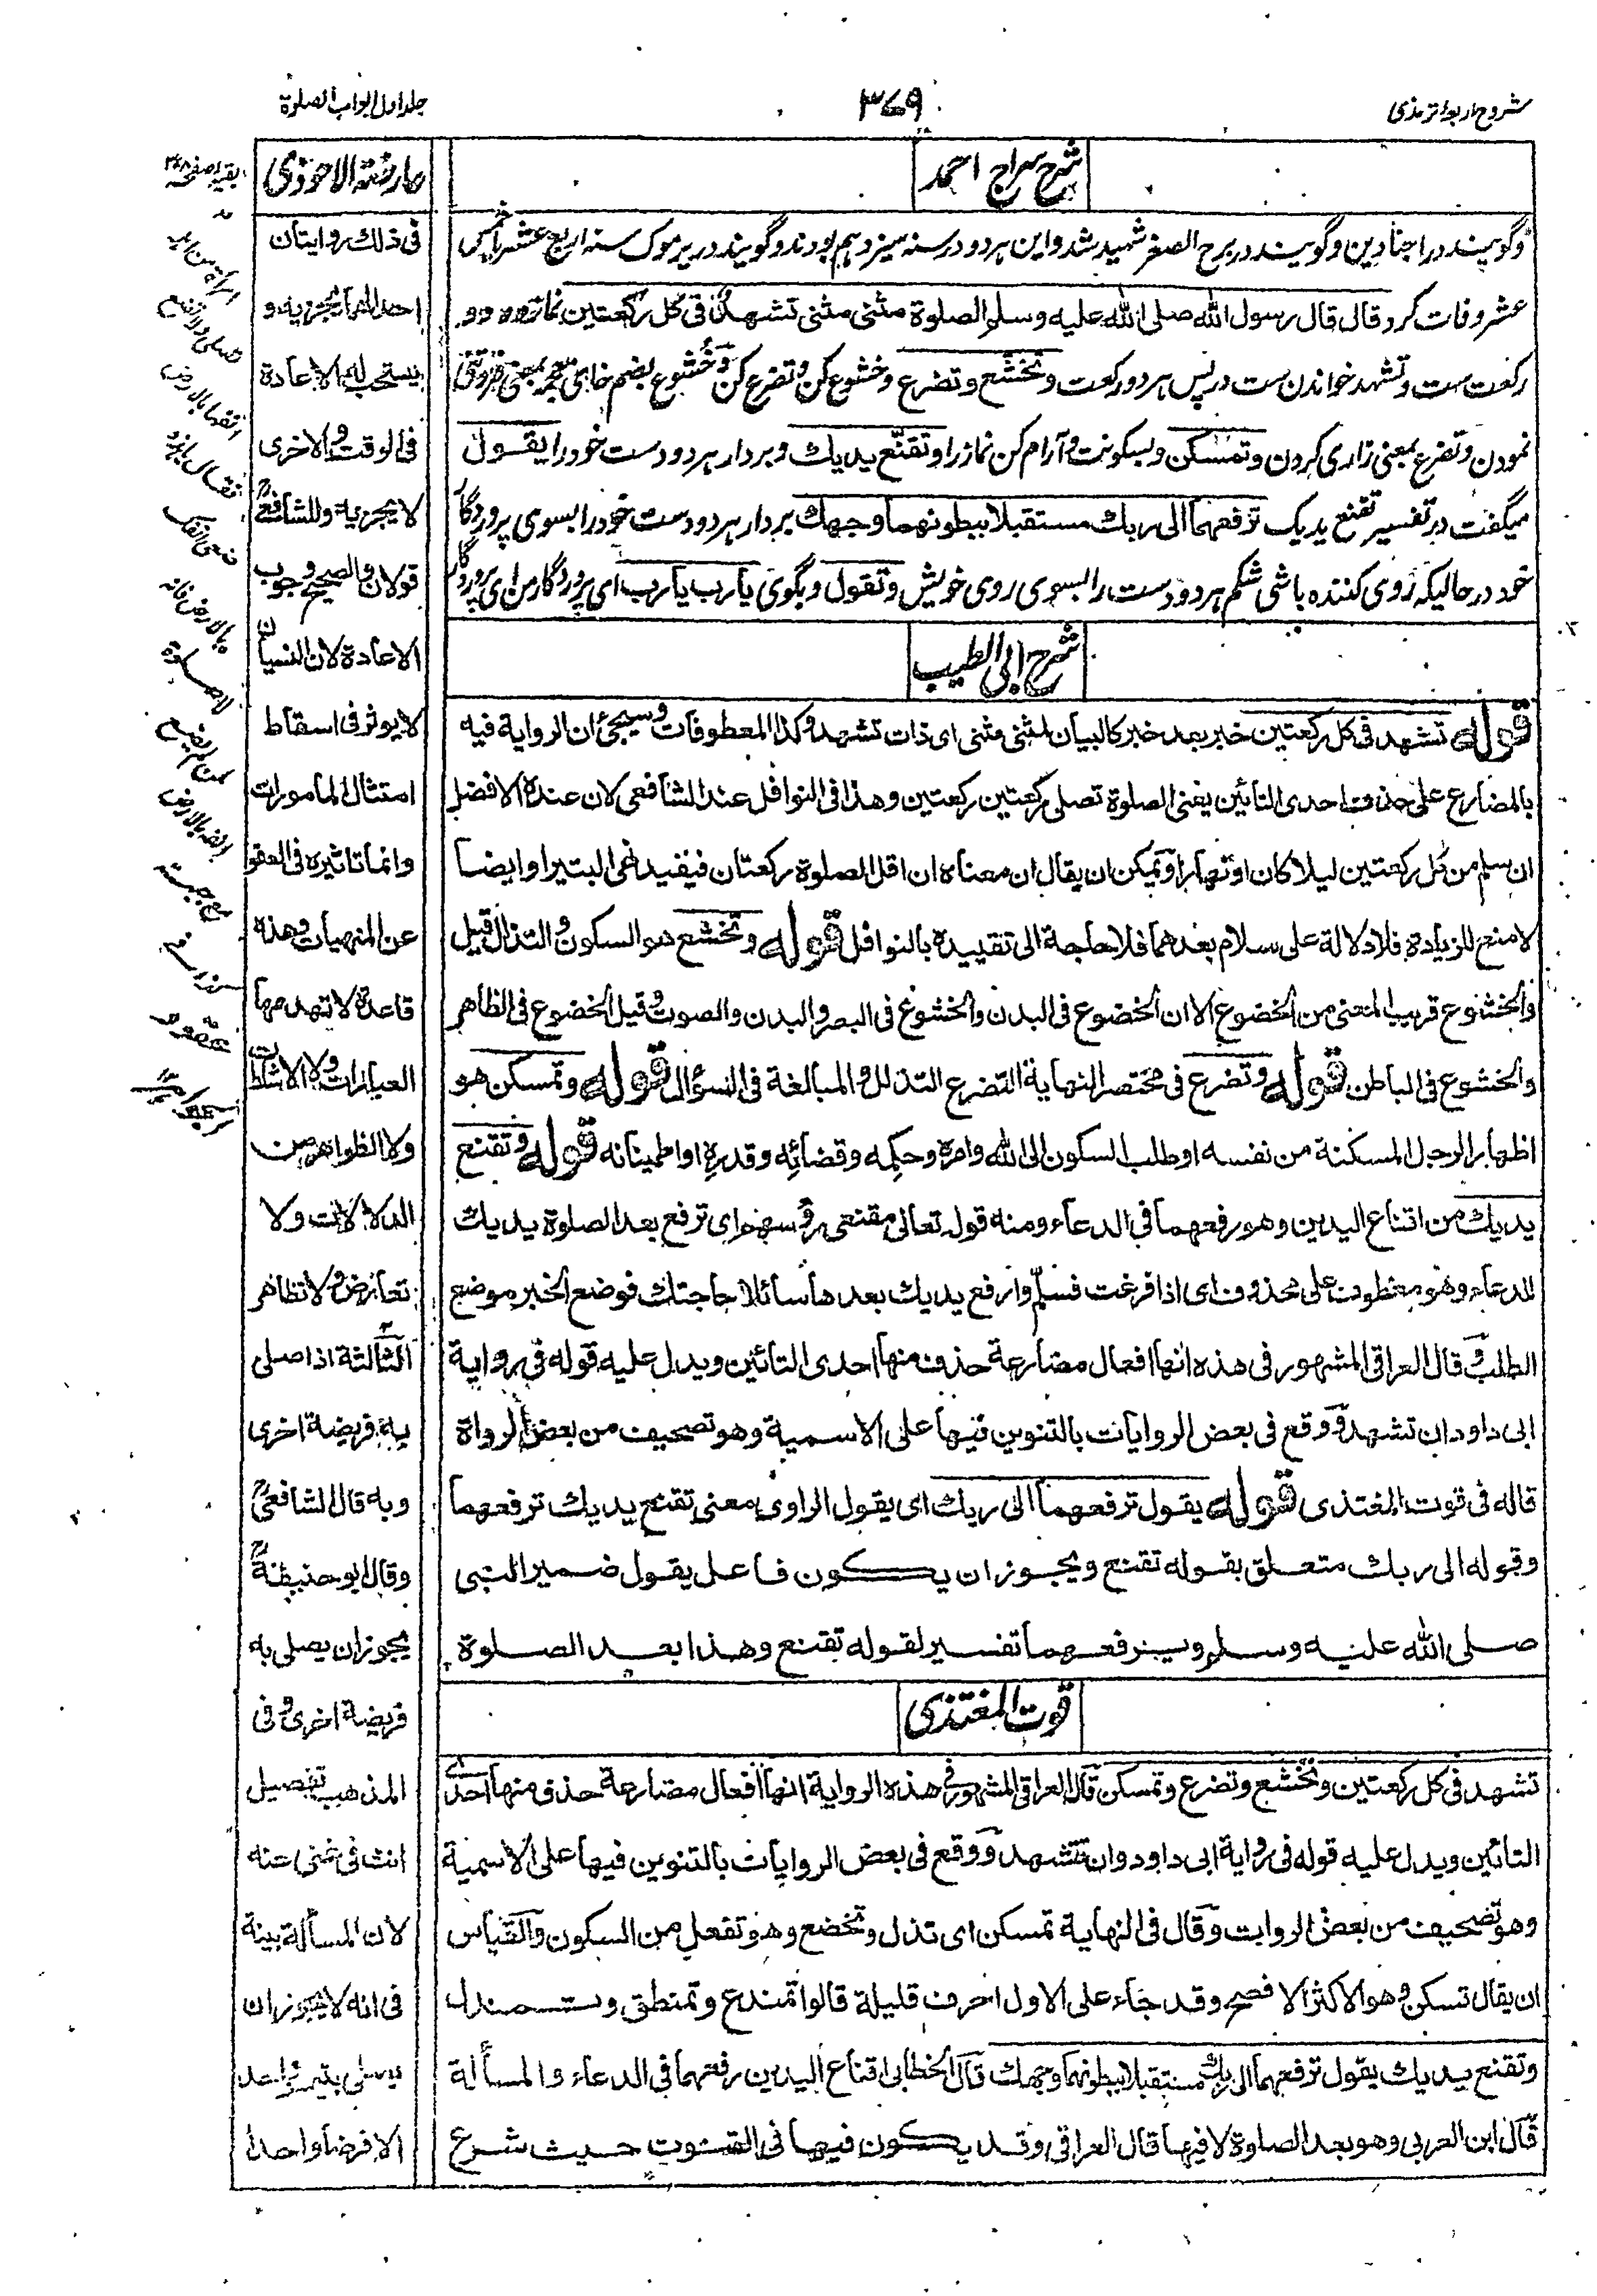 شروح اربعہ ترمذی
۳۷۹
جلد اول ابواب الصلوة
شرح سراج احمد
وگویند در اجنادین وگویند در برج الصفر شهید شد واین هر دو در سنه سیزدهم بودند وگویند در یرموک سنه اربع عشر یا خمس
عشر وفات کرد قال قال رسول الله صلى الله عليه وسلم الصلوة مثنى مثنى تشهد فى كل ركعتين نماز دو دو
رکعت ست وتشهد خواندن ست در پس هر دو رکعت وتخشع وتضرع وخشوع کن وتضرع کن وخشوع بضم خای معجمه بمعنی فروتنی
نمودن وتضرع بمعنی زاری کردن وتمسكن وبسکونت وآرام کن نماز را وتقنع يديك وبردار هر دو دست خود را يقول
میگفت در تفسیر تقنع یدیک ترفعهما الى ربك مستقبلا ببطونهما وجهك بردار هر دو دست خود را بسوی پروردگار
خود در حالیکه روی کننده باشی شکم هر دو دست را بسوی روی خویش وتقول وبگوی يارب يارب ای پروردگار من ای پروردگار
شرح ابى الطيب
قوله تشهد فى كل ركعتين خبر بعد خبر كالبيان لمثنى مثنى اى ذات تشهد وكذا المعطوفات وسيجئ ان الرواية فيه
بالمضارع على حذف احدى التائين يعنى الصلوة تصلى ركعتين ركعتين وهذا فى النوافل عند الشافعى لان عنده الافضل
ان سلم من كل ركعتين ليلا كان او نهارا ويمكن ان يقال ان معناه ان اقل الصلوة ركعتان فيفيد نهى البتيرا وايضا
لا منع للزيادة فلا دلالة على سلام بعدهما فلا حاجة الى تقييده بالنوافل قوله وتخشع هو السكون والتذلل قيل
والخشوع قريب المعنى من الخضوع الا ان الخضوع فى البدن والخشوع فى البصر والبدن والصوت وقيل الخضوع فى الظاهر
والخشوع فى الباطن قوله وتضرع فى مختصر النهاية التضرع التذلل والمبالغة فى السؤال قوله وتمسكن هو
اظهار الرجل المسكنة من نفسه او طلب السكون الى الله وامره وحكمه وقضائه وقدره او اطمينانه قوله وتقنع
يديك من اقناع اليدين وهو رفعهما فى الدعاء ومنه قوله تعالى مقنعى رؤسهم اى ترفع بعد الصلوة يديك
للدعاء وهو معطوف على محذوف اى اذا فرغت فسلم وارفع يديك بعدها سائلا حاجتك فوضع الخبر موضع
الطلب وقال العراقى المشهور فى هذه انها افعال مضارعة حذف منها احدى التائين ويدل عليه قوله فى رواية
ابى داود ان تشهد ووقع فى بعض الروايات بالتنوين فيها على الاسمية وهو تصحيف من بعض الرواة
قاله فى قوت المغتذى قوله يقول ترفعهما الى ربك اى يقول الراوى معنى تقنع يديك ترفعهما
وقوله الى ربك متعلق بقوله تقنع ويجوز ان يكون فاعل يقول ضمير النبى
صلى الله عليه وسلم وترفعهما تفسير لقوله تقنع وهذا بعد الصلوة
قوت المغتذى
تشهد فى كل ركعتين وتخشع وتضرع وتمسكن قال العراقى المشهور فى هذه الرواية انها افعال مضارعة حذف منها احدى
التائين ويدل عليه قوله فى رواية ابى داود وان تتشهد ووقع فى بعض الروايات بالتنوين فيها على الاسمية
وهو تصحيف من بعض الروات وقال فى النهاية تمسكن اى تذل وتخضع وهو تفعل من السكون والقياس
ان يقال تسكن وهو الاكثر الافصح وقد جاء على الاول احرف قليلة قالوا تمدرع وتمنطق وتمندل
وتقنع يديك يقول ترفعهما الى ربك مستقبلا ببطونهما وجهك قال الخطابى اقناع اليدين رفعهما فى الدعاء والمسألة
قال ابن العربى وهو بعد الصلوة لا فيها قال العراقى وقد يكون فيها فى القنوت حيث شرع
عارضة الاحوذى
فى ذلك روايتان
احداهما تجزيه و
يستحب له الاعادة
فى الوقت والاخرى
لا يجزيه وللشافعى
قولان والصحيح وجوب
الاعادة لان النسيان
لا يوثر فى اسقاط
امتثال المامورات
وانما تاثيره فى العفو
عن المنهيات وهذه
قاعدة لا تهدمها
العبارات ولا الاشارات
ولا الظواهر من
الدلالات ولا
تعارض ولا تظاهر
الثالثة اذا صلى
به فريضة اخرى
وبه قال الشافعى
وقال ابو حنيفة
يجوز ان يصلى به
فريضة اخرى وفى
المذهب تفصيل
انت فى غنى عنه
لان المسألة بينة
فى انه لا يجوز ان
يصلى بتيمم واحد
الا فرضا واحدا